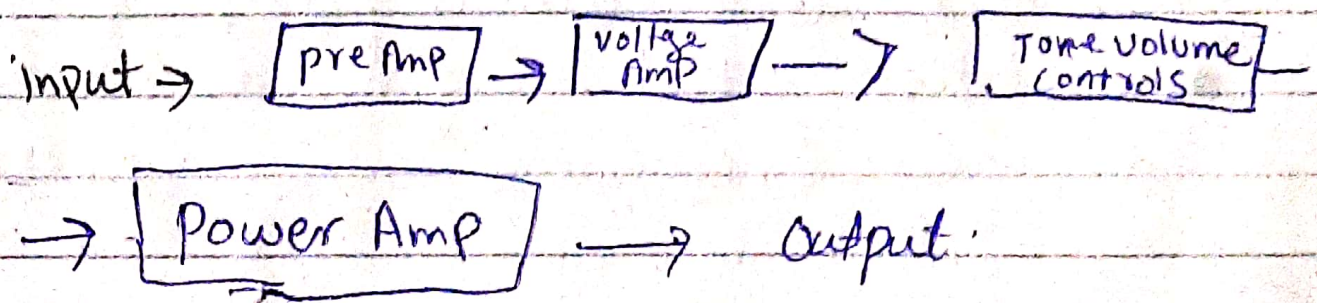 input → pre Amp → voltge Amp → Tone volume controls
→ Power Amp → Output.